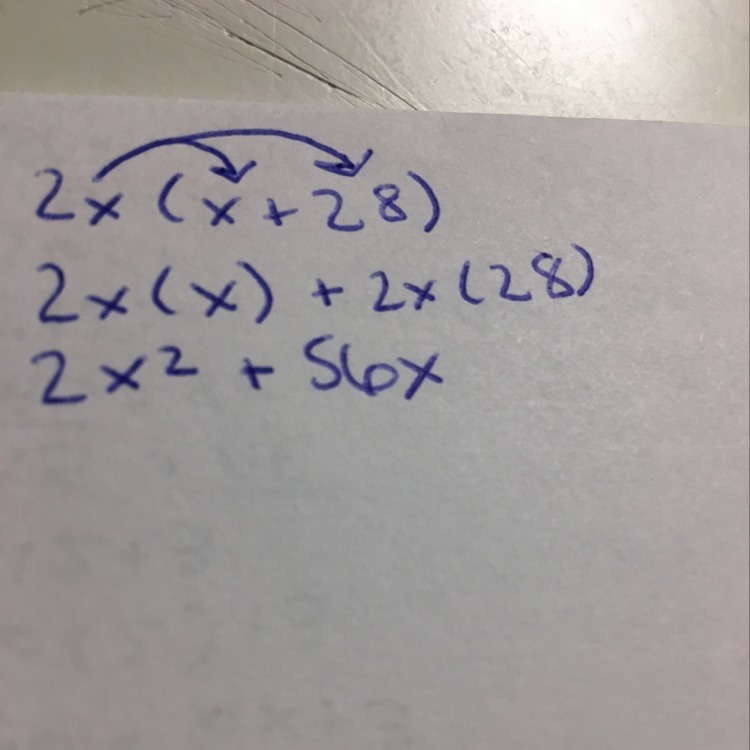 2x (x + 28)
2x (x) + 2x (28)
2x² + 56x